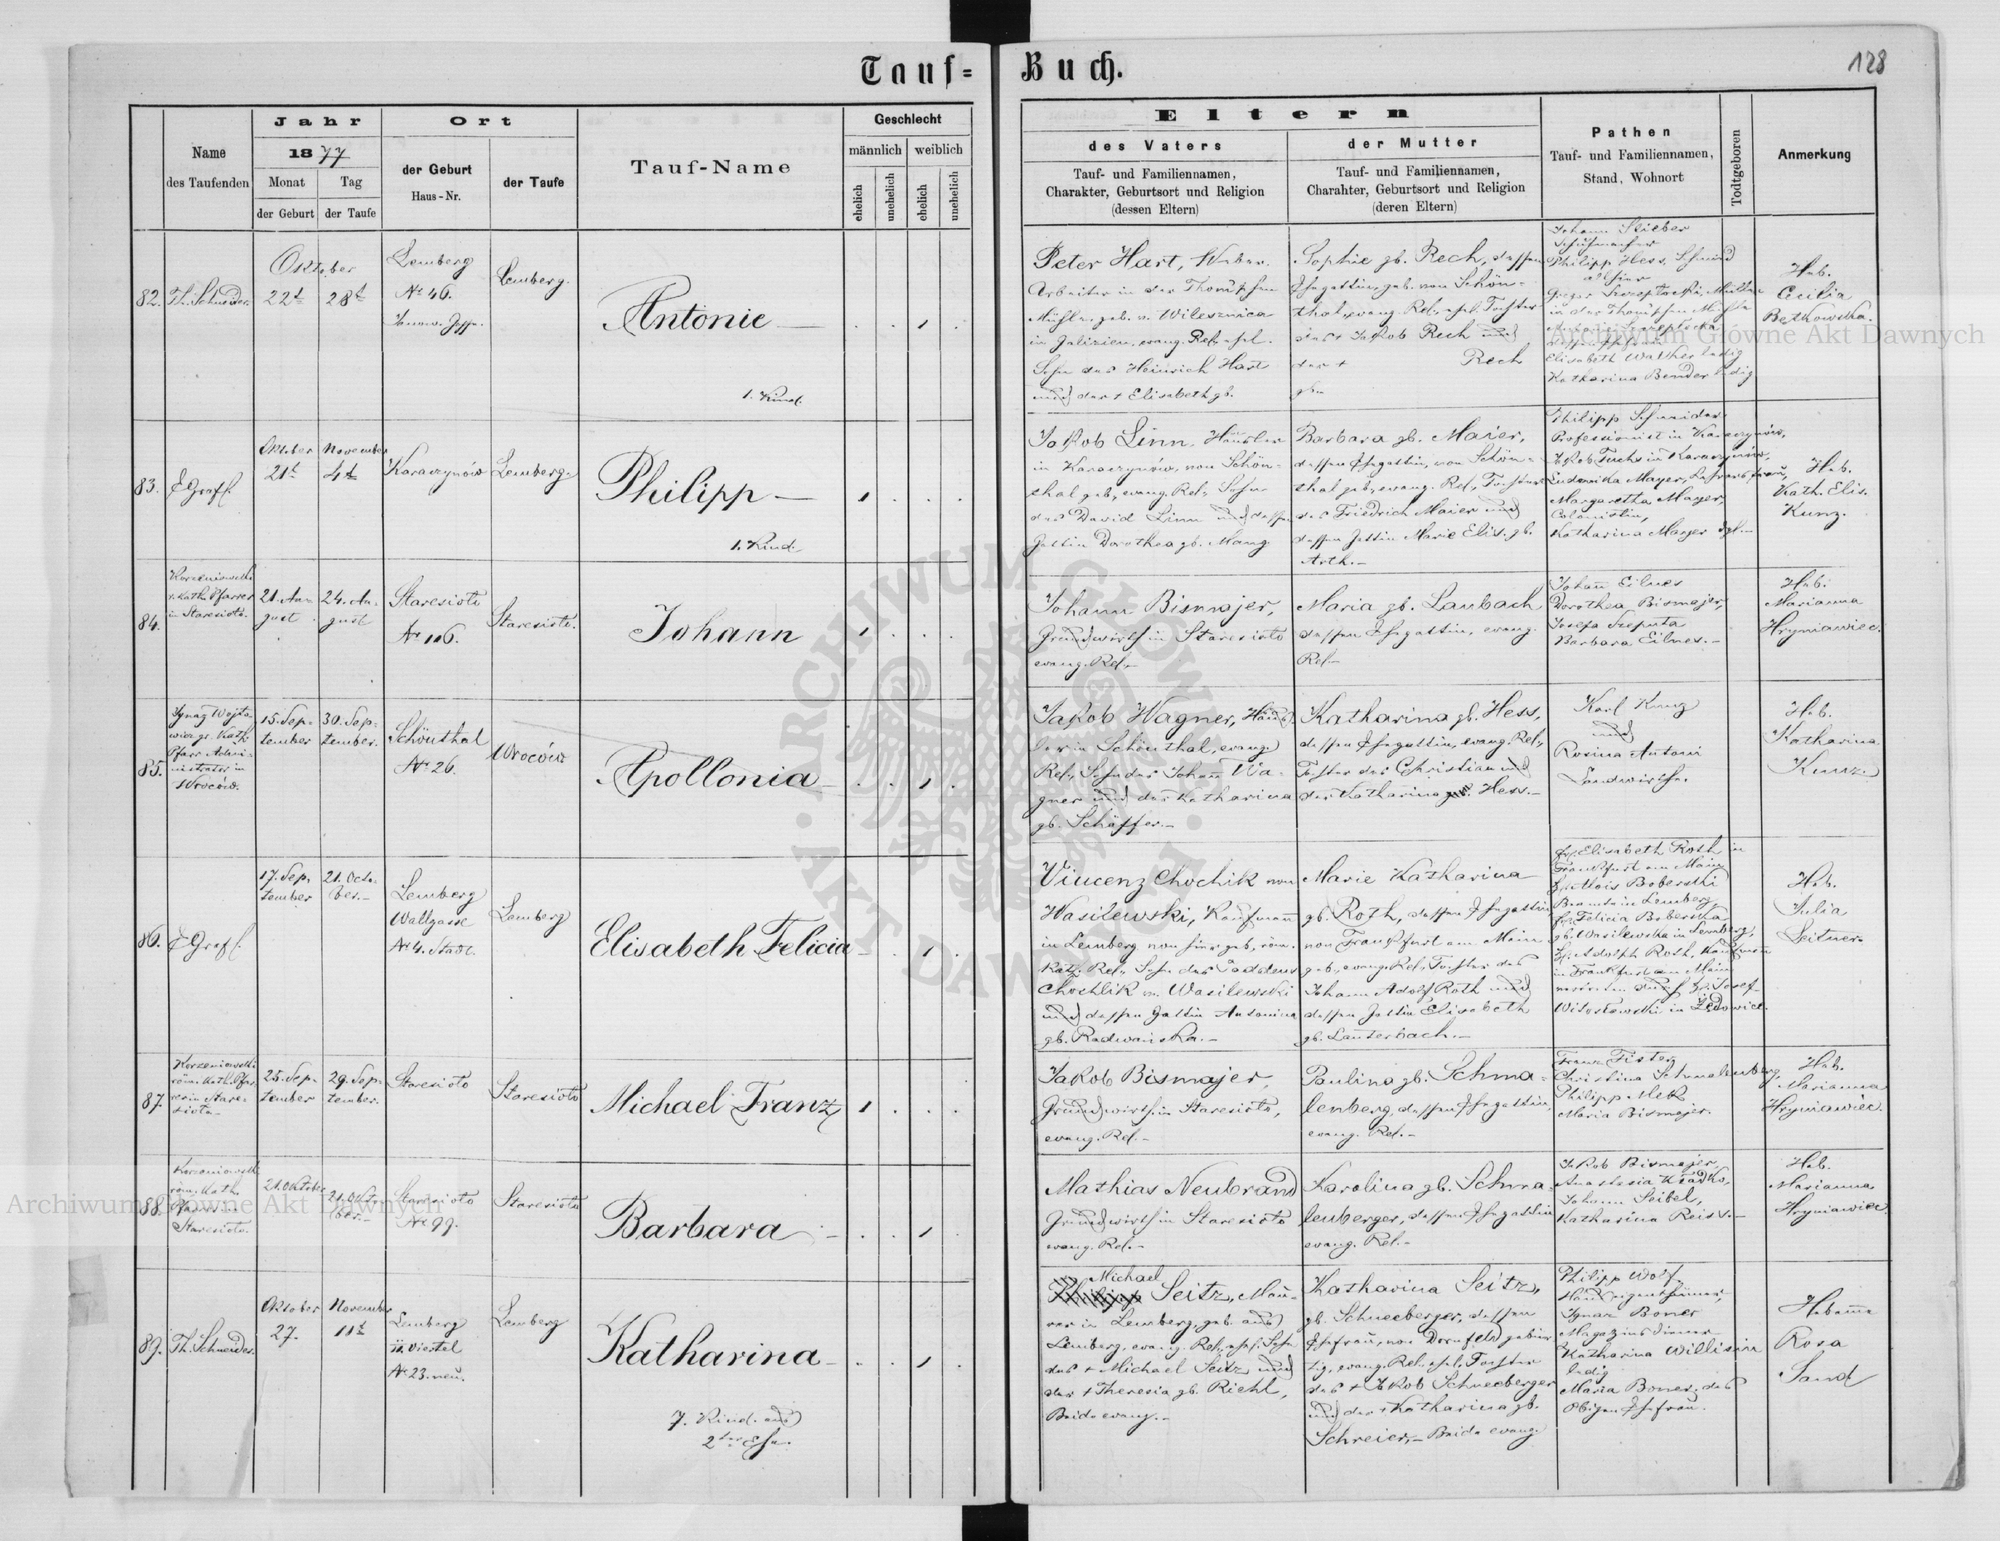 Tauf= Buch.
128
Name des Taufenden
Jahr
1877
Monat der Geburt
Tag der Taufe
Ort
der Geburt
Haus-Nr.
der Taufe
Tauf-Name
Geschlecht
männlich weiblich
ehelich unehelich ehelich unehelich
Eltern
des Vaters
Tauf- und Familiennamen,
Charakter, Geburtsort und Religion
(dessen Eltern)
der Mutter
Tauf- und Familiennamen,
Charahter, Geburtsort und Religion
(deren Eltern)
Pathen
Tauf- und Familiennamen,
Stand, Wohnort
Todtgeboren
Anmerkung
82. Th. Schneider.
Oktober
22t 28t
Lemberg
No 46.
Lemberg.
Antonie
1. Kind.
Peter Hart, Weber.
Arbeiter in der Thom'schen
Mühle, geb. v. Wilesznica
in Galizien, evang. Rel. ehel.
Sohn des Heinrich Hart
und der + Elisabeth gb.
Sophie gb. Rech, dessen
Ehegattin, geb. von Schön=
thal, evang. Rel., ehel. Tochter
des + Jakob Rech und
der + Rech
gb.
Johann Stieber
Schuhmacher
Philipp Hess, Schmied
allhier
in der Thom'schen Mühle
Elisabeth Walther ledig
Katharina Bender ledig
Heb.
Cecilia
Betkowska.
83. E Grafl.
Oktober 21t
November 4t
Karaczynów
Lemberg
Philipp
1. Kind.
Jakob Linn, Häusler
in Karaczynów, von Schön=
thal geb., evang. Rel., Sohn
des David Linn und dessen
Gattin Dorothea gb. Mang.
Barbara gb. Maier,
dessen Ehegattin, von Schön=
thal geb., evang. Rel., Tochter
des Friedrich Maier und
dessen Gattin Marie Elis. gb.
Arth.
Philipp Schneider
Professionist in Karaczynów,
Jakob Fuchs in Karaczynów,
Ludowika Mayer, Lehrersfrau,
Margaretha Mayer,
Colonistin,
Katharina Mayer dgl.
Heb.
Kath. Elis.
Kunz.
84.
Korzeniowski
r. kath. Pfarrer
in Staresioło.
21. August
24. August
Staresioło
No 106.
Staresioło.
Johann
Johann Bismajer,
Grundwirth in Staresioło
evang. Rel.
Maria gb. Laubach
dessen Ehegattin, evang.
Rel.
Johann Eilnes
Dorothea Bismajer,
Josefa Szeputa
Barbara Eilnes.
Heb.
Marianna
Hryniawiec.
85.
Ignaz Wojto
wicz gr. kath.
Pfarr Admi=
nistrator in
Wroców.
15. September
30. September.
Schönthal
No 26.
Wroców
Apollonia
Jakob Wagner, Häus=
ler in Schönthal, evang.
Rel., Sohn des Johann Wa=
gner und der Katharina
gb. Schäffer.
Katharina gb. Hess,
dessen Ehegattin, evang. Rel.,
Tochter des Christian und
der Katharina Hess.
Karl Kunz
und
Rosina Antoni
Landwirthe.
Heb.
Katharina
Kunz.
86. E Grafl.
17. September
21. October.
Lemberg
Wallgasse
No 4. Stadt.
Lemberg
Elisabeth Felicia
Vincenz Chochlik von
Wasilewski, Kaufmann
in Lemberg von hier geb., röm.
kath. Rel., Sohn des Tadäeus
Chochlik v. Wasilewski
und dessen Gattin Antonina
gb. Radwańska.
Marie Katharina
gb. Roth, dessen Ehegattin
von Frankfurt am Main
geb., evang. Rel., Tochter des
Johann Adolf Roth und
dessen Gattin Elisabeth
gb. Lauterbach.
Fr. Elisabeth Roth in
Frankfurt am Main,
Hr. Alois Boberski
Beamte in Lemberg,
Fr. Felicia Boberska,
gb. Wasilewska in Lemberg,
Hr. Adolph Roth, Kaufmann
in Frankfurt am Main
vertreten durch Hr. Josef
Witosławski in
Heb.
Julia
Leitner.
87.
Korzeniowski
röm. kath. Pfar=
rer in Stare=
sioło.
25. September
29. September.
Staresioło
Staresioło
Michael Franz
Jakob Bismajer,
Grundwirth in Staresioło,
evang. Rel.
Paulina gb. Schma=
lenberg, dessen Ehegattin,
evang. Rel.
Franz Fister,
Christina Schmalenberg,
Philipp Metz
Maria Bismajer.
Heb.
Marianna
Hryniawiec.
88.
Korzeniowski
röm. kath.
Pfarrer in
Staresioło.
21. Oktober
21. Oktober.
Staresioło
No 99.
Staresioło
Barbara
Mathias Neubrand
Grundwirth in Staresioło
evang. Rel.
Karolina gb. Schma=
lenberger, dessen Ehegattin
evang. Rel.
Jakob Bismajer,
Anastasia
Johann Seibel,
Katharina Reiss.
Heb.
Marianna
Hryniawiec
89. Th. Schneider.
Oktober 27.
November 11t
Lemberg
II. Viertel
No 23. neu.
Lemberg
Katharina
7. Kind. aus
2ter Ehe.
Michael
Seitz, Mau=
rer in Lemberg, geb. aus
Lemberg, evang. Rel., ehel. Sohn
des + Michael Seitz und
der + Theresia gb. Riehl,
Beide evang.
Katharina Seitz,
gb. Schneeberger, dessen
Ehefrau, von Dornfeld gebür=
tig, evang. Rel., ehel. Tochter
des + Jakob Schneeberger
und der + Katharina gb.
Schreier, Beide evang.
Philipp Wolf,
Hauseigenthümer,
Ignaz Boner
Magazinsdiener
Katharina Willisin
ledig
Maria Boner, des
Obigen Ehefrau.
Hebamme
Rosa
Sand
Archiwum Główne Akt Dawnych
Archiwum Główne Akt Dawnych
ARCHIWUM GŁÓWNE AKT DAWNYCH